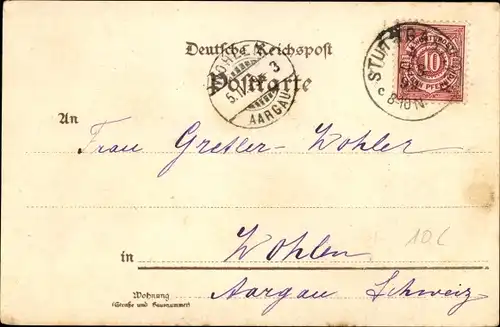 Deutsche Reichspost
Postkarte
STUTTGA
8-10 N.
10
WOHLEN
AARGAU
An
Frau Gretler-Wohler
in Wohlen
Aargau Schweiz
Wohnung
(Straße und Hausnummer)
10.